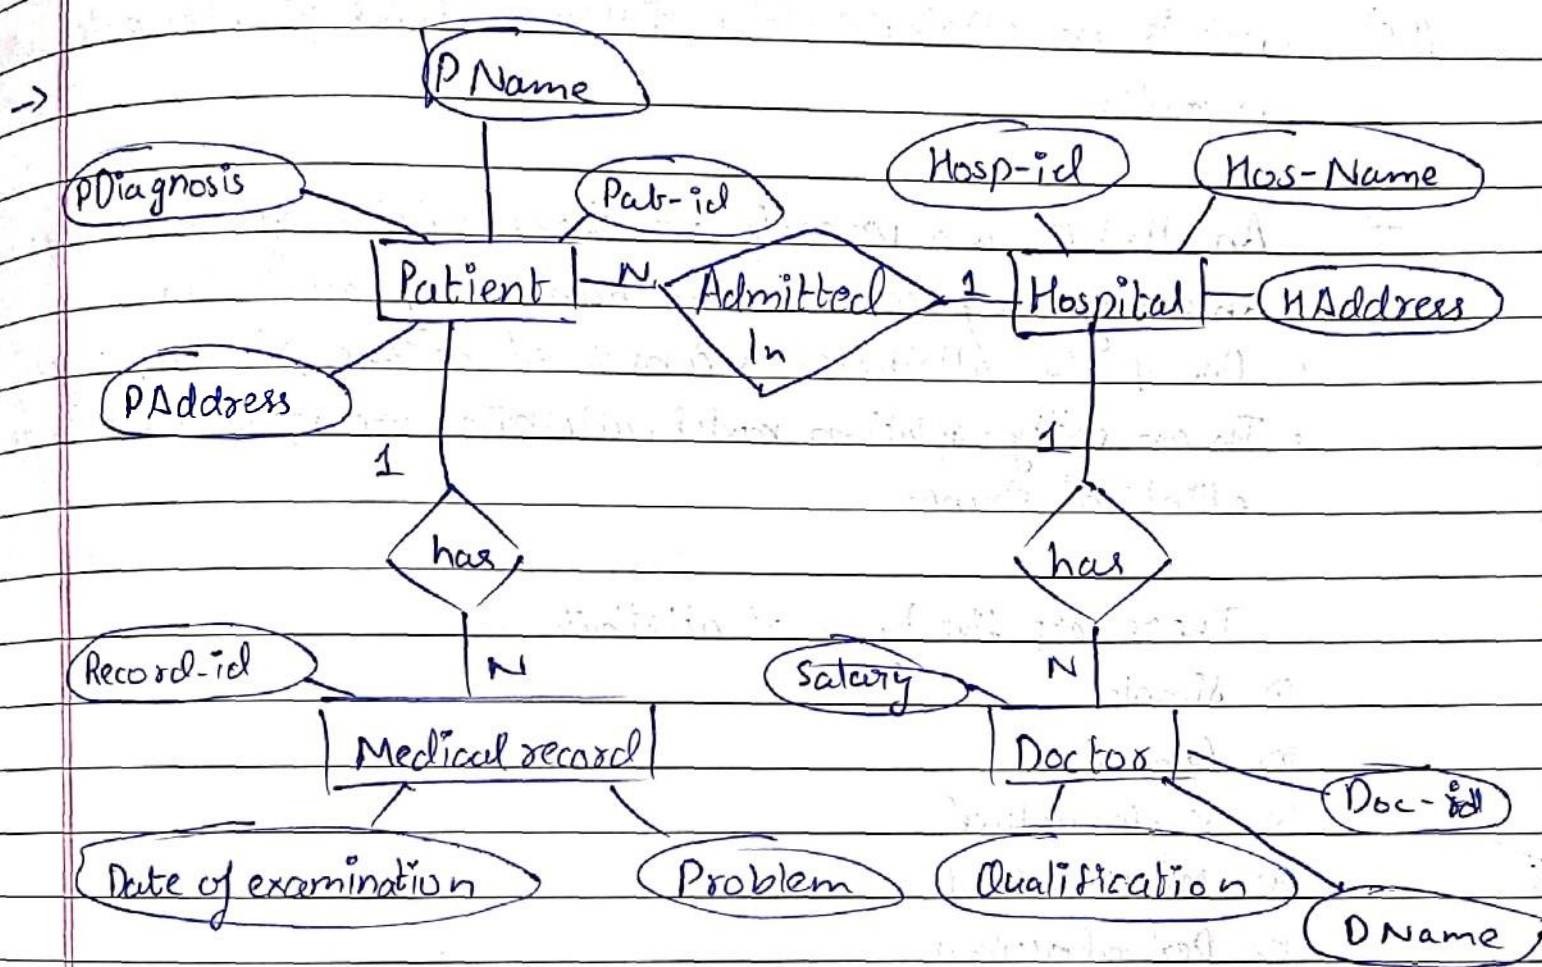 →
P Name
PDiagnosis
Pat-id
Hosp-id
Hos-Name
Patient
N
Admitted
In
1
Hospital
HAddress
PAddress
1
1
has
has
Record-id
N
Salary
N
Medical record
Doctor
Doc-id
Date of examination
Problem
Qualification
D Name